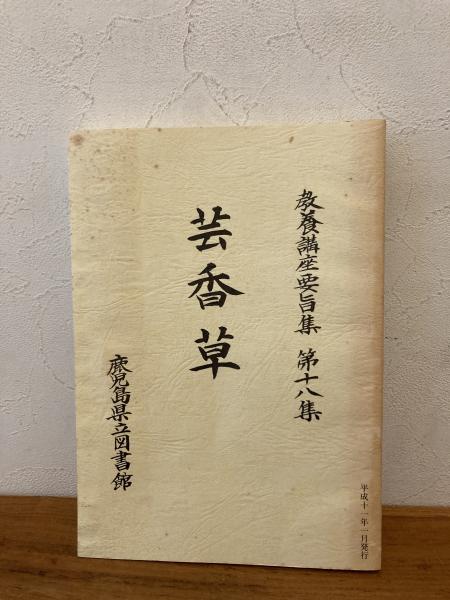 教養講座要旨集 第十八集
芸香草
鹿児島県立図書館
平成十一年一月発行